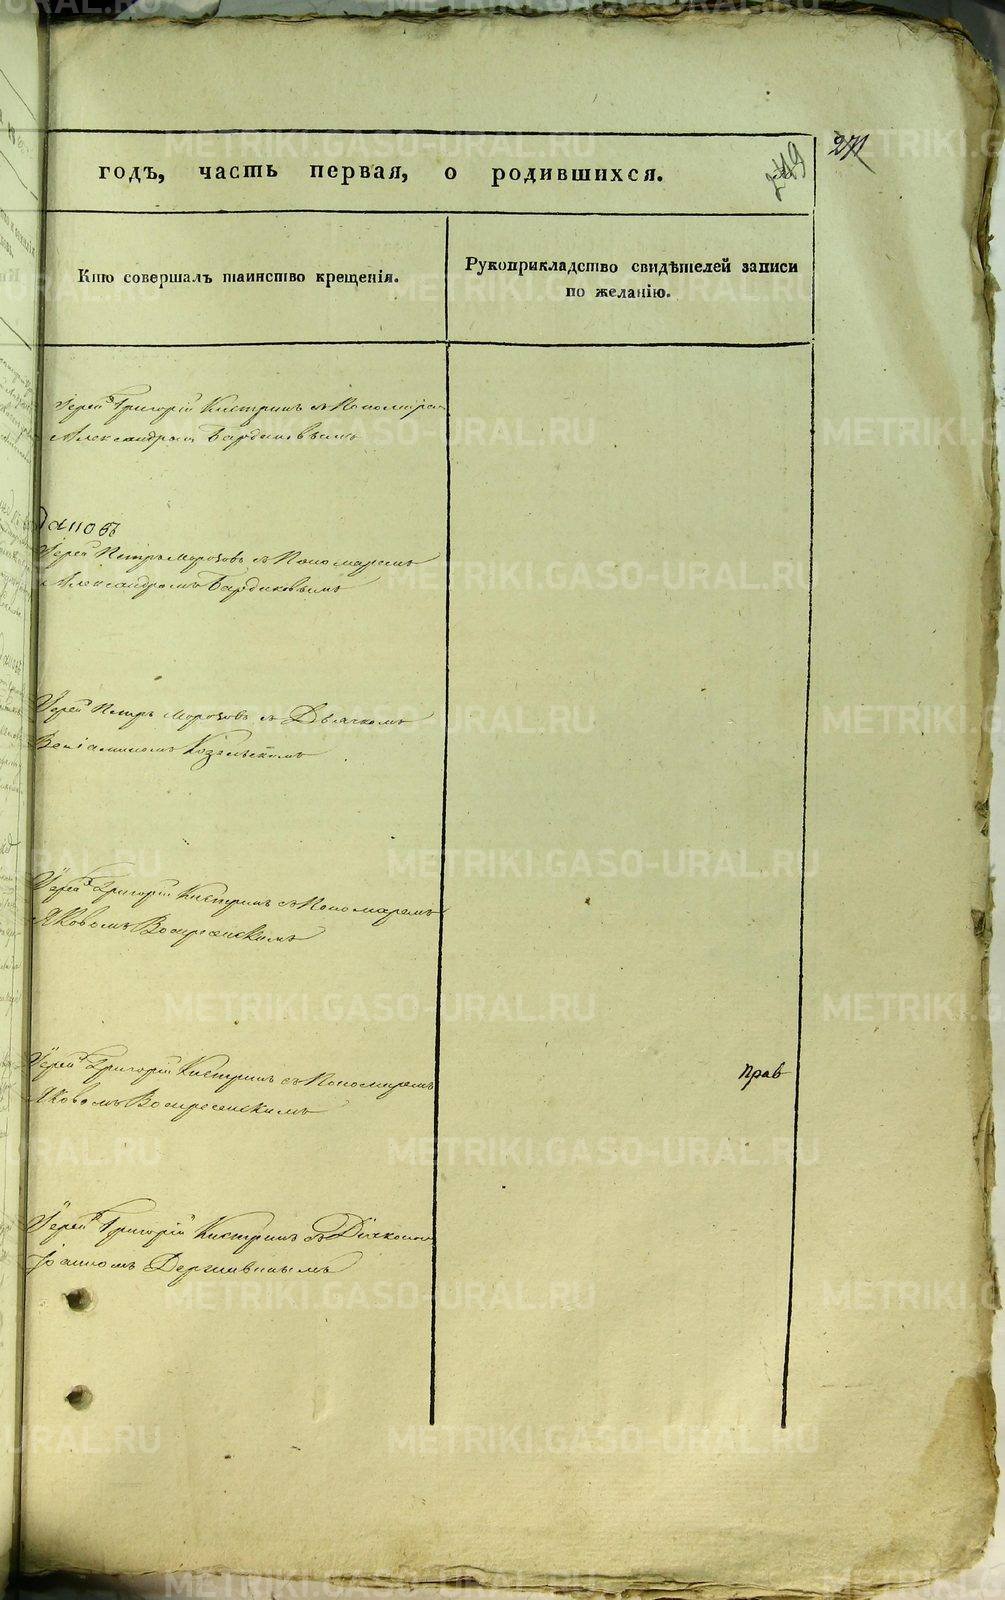 годъ, часть первая, о родившихся.
249
271
Кто совершалъ таинство крещенія.
Рукоприкладство свидѣтелей записи
по желанію.
Іерей Григорій Кистринъ съ Пономаремъ
Александромъ Бардиковымъ
Іерей Петръ Морозовъ съ Пономаремъ
Александромъ Бардиковымъ
Іерей Петръ Морозовъ съ Дьячкомъ
Веніаминомъ Козельскимъ
Іерей Григорій Кистринъ съ Пономаремъ
Яковомъ Воскресенскимъ
Іерей Григорій Кистринъ съ Пономаремъ
Яковомъ Воскресенскимъ
прав
Іерей Григорій Кистринъ съ Діякономъ
Іоанномъ Державинымъ
METRIKI.GASO-URAL.RU